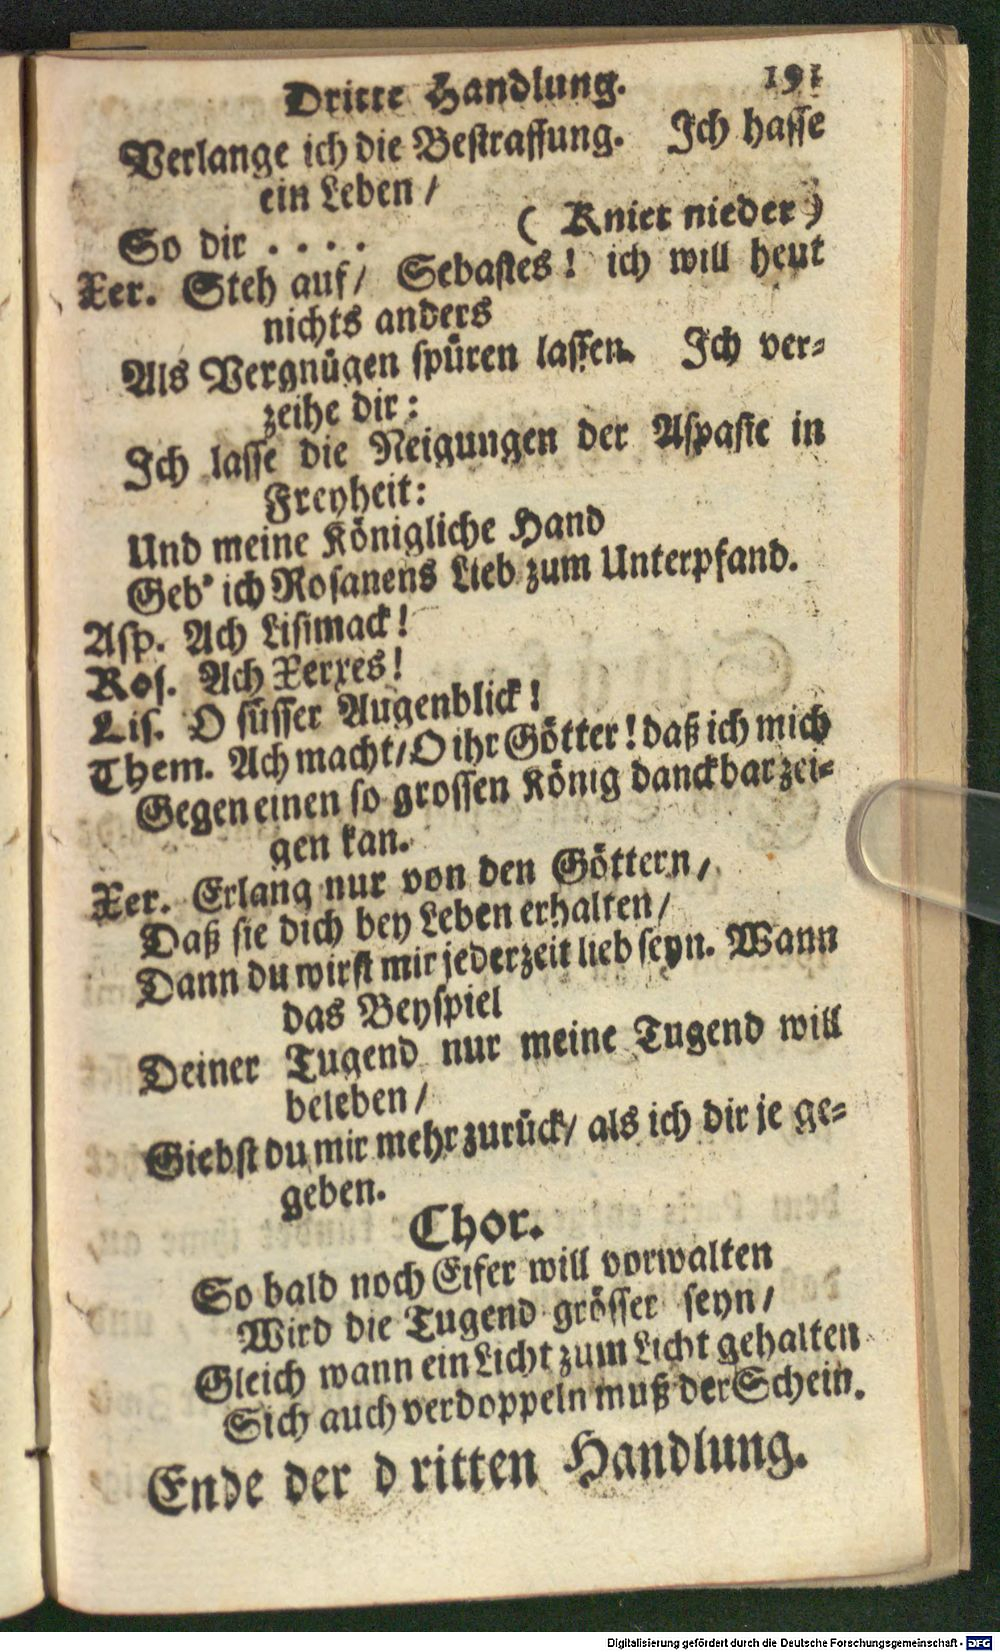 Dritte Handlung. 191
Verlange ich die Bestraffung. Ich hasse
ein Leben /
So dir . . . . ( Kniet nieder )
Xer. Steh auf / Sebastes ! ich will heut
nichts anders
Als Vergnügen spüren lassen. Ich ver-
zeihe dir :
Ich lasse die Neigungen der Aspasie in
Freyheit :
Und meine Königliche Hand
Geb' ich Rosanens Lieb zum Unterpfand.
Asp. Ach Lisimack !
Ros. Ach Xerxes !
Lis. O süsser Augenblick !
Them. Ach macht / O ihr Götter ! daß ich mich
Gegen einen so grossen König danckbar zei-
gen kan.
Xer. Erlang nur von den Göttern /
Daß sie dich bey Leben erhalten /
Dann du wirst mir jederzeit lieb seyn. Wann
das Beyspiel
Deiner Tugend nur meine Tugend will
beleben /
Giebst du mir mehr zurück / als ich dir je ge-
geben.
Chor.
So bald noch Eifer will vorwalten
Wird die Tugend grösser seyn /
Gleich wann ein Licht zum Licht gehalten
Sich auch verdoppeln muß der Schein.
Ende der dritten Handlung.
Digitalisierung gefördert durch die Deutsche Forschungsgemeinschaft - DFG